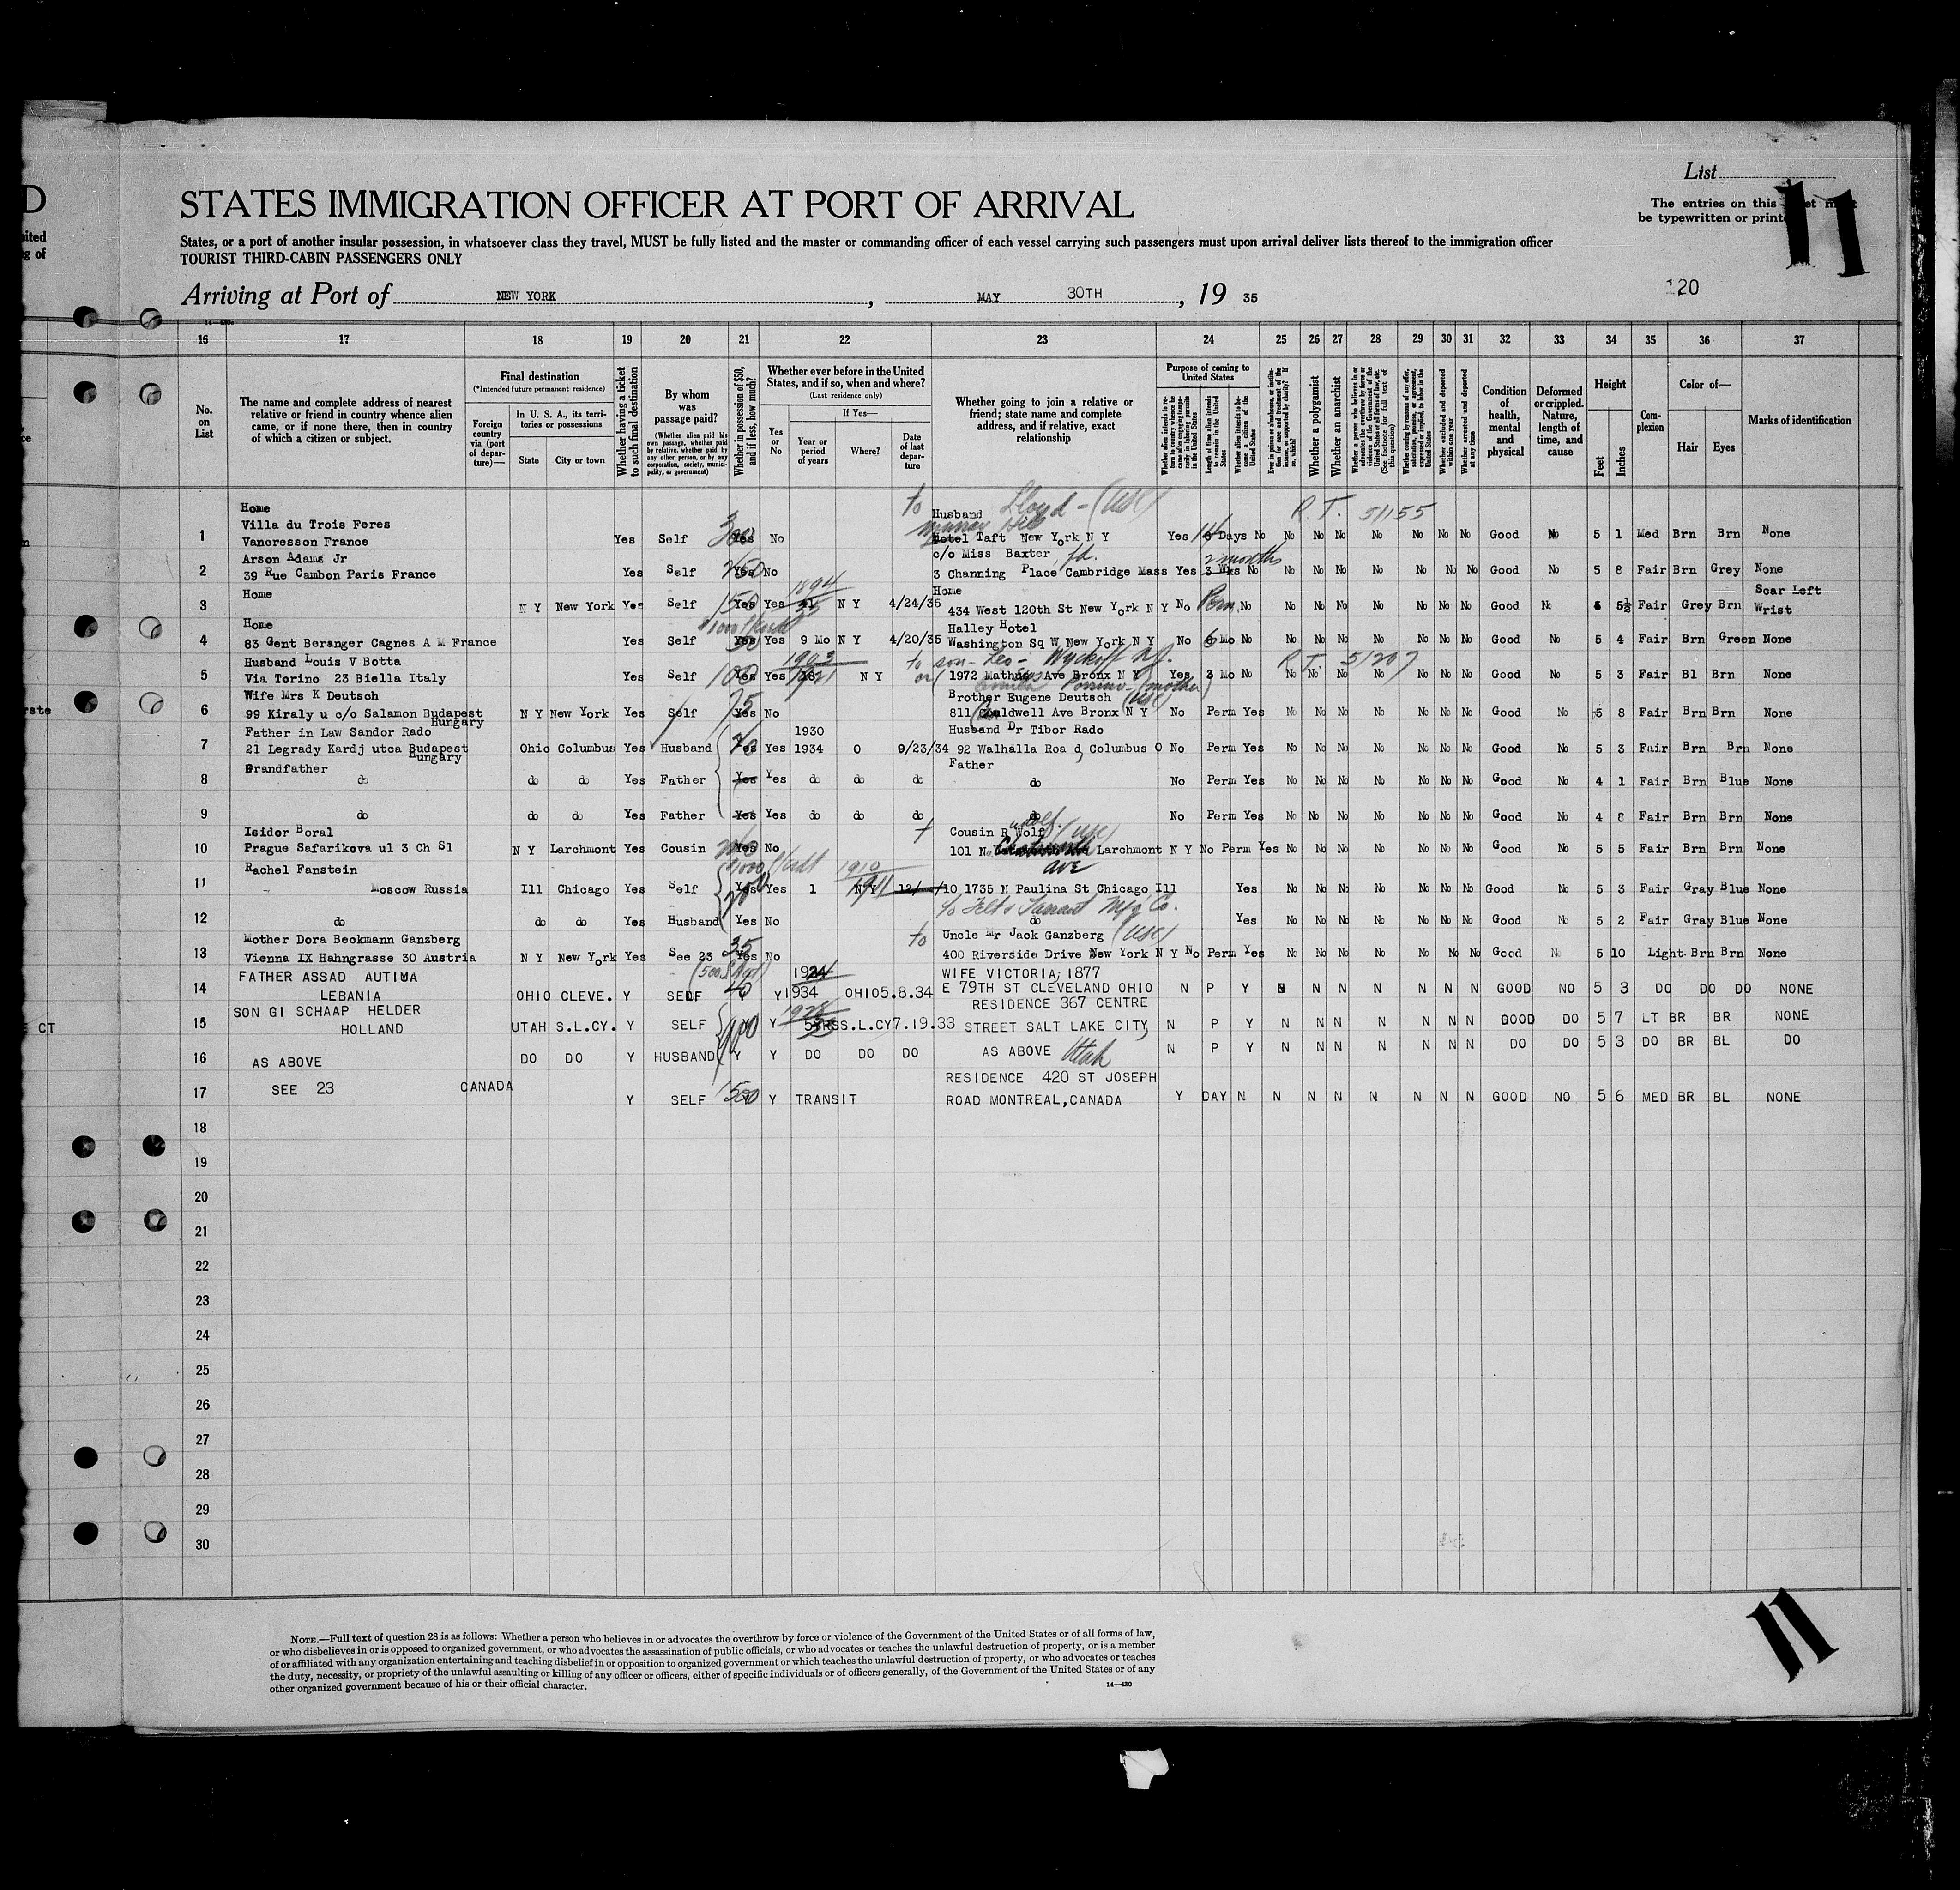 D
List
STATES IMMIGRATION OFFICER AT PORT OF ARRIVAL
11
The entries on this
be typewritten or
States, or a port of another insular possession, in whatsoever class they travel, MUST be fully listed and the master or commanding officer of each vessel carrying such passengers must upon arrival deliver lists thereof to the immigration officer
TOURIST THIRD-CABIN PASSENGERS ONLY
Arriving at Port of NEW YORK , MAY 30TH , 19 35
120
16 17 18 19 20 21 22 23 24 25 26 27 28 29 30 31 32 33 34 35 36 37
No. on List
The name and complete address of nearest relative or friend in country whence alien came, or if none there, then in country of which a citizen or subject.
Final destination
(*Intended future permanent residence)
Foreign country via (port of departure)—
In U. S. A., its territories or possessions
State
City or town
Whether having a ticket to such final destination
By whom was passage paid?
(Whether alien paid his own passage, whether paid by relative, whether paid by any other person, or by any corporation, society, municipality, or government)
Whether in possession of $50, and if less, how much?
Whether ever before in the United States, and if so, when and where?
(Last residence only)
Yes or No
If Yes—
Year or period of years
Where?
Date of last departure
Whether going to join a relative or friend; state name and complete address, and if relative, exact relationship
Purpose of coming to United States
Length of time alien intends to remain in the United States
Whether a polygamist
Whether an anarchist
Whether excluded and deported within one year
Whether arrested and deported at any time
Condition of health, mental and physical
Deformed or crippled. Nature, length of time, and cause
Height
Feet
Inches
Complexion
Color of—
Hair
Eyes
Marks of identification
Home to Husband Lloyd - (USC) R.T. 51155
Villa du Trois Feres
1 Vancresson France Yes Self Yes No Hotel Taft New York N Y Yes Days No No No No No No No No Good No 5 1 Med Brn Brn None
Arson Adams Jr c/o Miss Baxter fd. 2 months
2 39 Rue Cambon Paris France Yes Self Yes No 3 Channing Place Cambridge Mass Yes 3 Wks No No No No No No No No Good No 5 8 Fair Brn Grey None
Home 1894 Home Scar Left
3 N Y New York Yes Self 150 Yes Yes N Y 4/24/35 434 West 120th St New York N Y No Perm No No No No No No No No Good No 5 5½ Fair Grey Brn Wrist
Home Halley Hotel
4 83 Gent Beranger Cagnes A M France Yes Self Yes Yes 9 Mo N Y 4/20/35 Washington Sq W New York N Y No 6 Mo No No No No No No No No Good No 5 4 Fair Brn Green None
Husband Louis V Botta 1903 to son - Leo - Wyckoff N.J. R.T. 51207
5 Via Torino 23 Biella Italy Yes Self 100 Yes Yes N Y or 1972 Ave Bronx N Y Yes 3 Mo No No No No No No No No Good No 5 3 Fair Bl Brn None
Wife Mrs K Deutsch 75 Brother Eugene Deutsch (USC)
6 99 Kiraly u c/o Salamon Budapest Hungary N Y New York Yes Self Yes No 811 Caldwell Ave Bronx N Y No Perm Yes No No No No No No No Good No 5 8 Fair Brn Brn None
Father in Law Sandor Rado 1930 Husband Dr Tibor Rado
7 21 Legrady Kardj utca Budapest Hungary Ohio Columbus Yes Husband Yes Yes 1934 O 9/23/34 92 Walhalla Road Columbus O No Perm Yes No No No No No No No Good No 5 3 Fair Brn Brn None
Grandfather Father
8 do do do Yes Father Yes Yes do do do do No Perm Yes No No No No No No No Good No 4 1 Fair Brn Blue None
9 do do do Yes Father Yes Yes do do do do No Perm Yes No No No No No No No Good No 4 Fair Brn Brn None
Isidor Boral Cousin R Wolf (USC)
10 Prague Safarikova ul 3 Ch Sl N Y Larchmont Yes Cousin Yes No 101 N Ave Larchmont N Y No Perm Yes No No No No No No No Good No 5 5 Fair Brn Brn None
Rachel Fanstein 1910
11 Moscow Russia Ill Chicago Yes Self Yes Yes 1 N Y 1911 1735 N Paulina St Chicago Ill Yes No No No No No No No Good No 5 3 Fair Gray Blue None
c/o Felt & Tarrant Mfg Co.
12 do do do Yes Husband Yes No do Yes No No No No No No No Good No 5 2 Fair Gray Blue None
Mother Dora Beckmann Ganzberg 35 to Uncle Mr Jack Ganzberg (USC)
13 Vienna IX Hahngrasse 30 Austria N Y New York Yes See 23 Yes No 400 Riverside Drive New York N Y No Perm Yes No No No No No No No Good No 5 10 Light Brn Brn None
FATHER ASSAD AUTIMA 1924 WIFE VICTORIA, 1877
14 LEBANIA OHIO CLEVE. Y SELF Y Y 1934 OHIO 5.8.34 E 79TH ST CLEVELAND OHIO N P Y N N N N N N N GOOD NO 5 3 DO DO DO NONE
SON GI SCHAAP HELDER RESIDENCE 367 CENTRE
15 HOLLAND UTAH S.L.CY. Y SELF Y Y S.L.CY 7.19.33 STREET SALT LAKE CITY, N P Y N N N N N N N GOOD DO 5 7 LT BR BR NONE
16 AS ABOVE DO DO Y HUSBAND Y Y DO DO DO AS ABOVE Utah N P Y N N N N N N N DO DO 5 3 DO BR BL DO
SEE 23 CANADA RESIDENCE 420 ST JOSEPH
17 Y SELF Y TRANSIT ROAD MONTREAL, CANADA Y DAY N N N N N N N N GOOD NO 5 6 MED BR BL NONE
18
19
20
21
22
23
24
25
26
27
28
29
30
11
NOTE.—Full text of question 28 is as follows: Whether a person who believes in or advocates the overthrow by force or violence of the Government of the United States or of all forms of law,
or who disbelieves in or is opposed to organized government, or who advocates the assassination of public officials, or who advocates or teaches the unlawful destruction of property, or is a member
of or affiliated with any organization entertaining and teaching disbelief in or opposition to organized government or which teaches the unlawful destruction of property, or who advocates or teaches
the duty, necessity, or propriety of the unlawful assaulting or killing of any officer or officers, either of specific individuals or of officers generally, of the Government of the United States or of any
other organized government because of his or their official character.
14—430